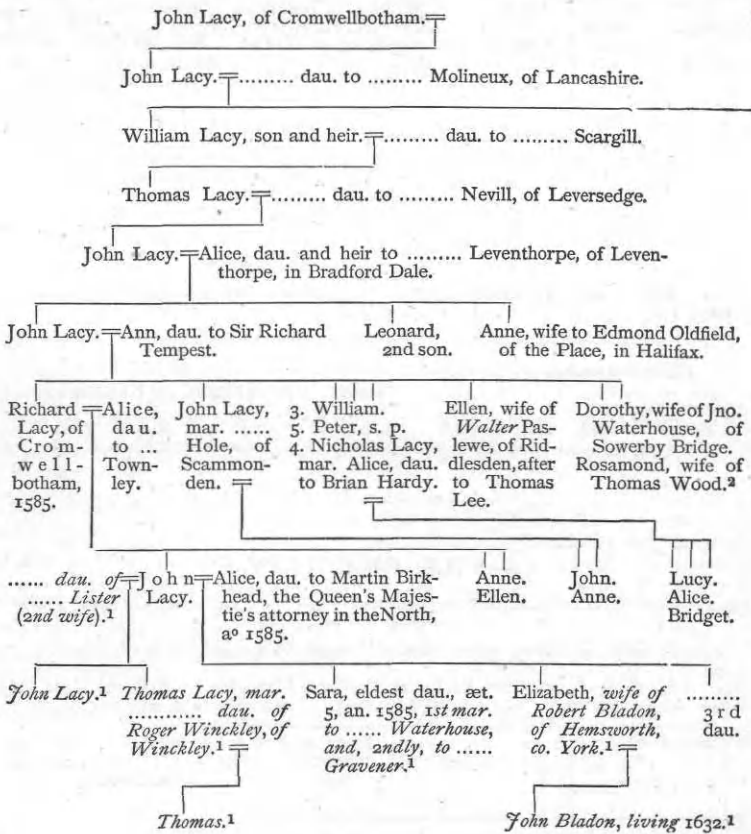 John Lacy, of Cromwellbotham.
John Lacy. ......... dau. to ......... Molineux, of Lancashire.
William Lacy, son and heir. ......... dau. to ......... Scargill.
Thomas Lacy. ......... dau. to ......... Nevill, of Leversedge.
John Lacy. Alice, dau. and heir to ......... Leventhorpe, of Leven-
thorpe, in Bradford Dale.
John Lacy. Ann, dau. to Sir Richard
Tempest.
Leonard,
2nd son.
Anne, wife to Edmond Oldfield,
of the Place, in Halifax.
Richard
Lacy, of
Crom-
well-
botham,
1585.
Alice,
dau.
to ...
Town-
ley.
John Lacy,
mar. ......
Hole, of
Scammon-
den.
3. William.
5. Peter, s. p.
4. Nicholas Lacy,
mar. Alice, dau.
to Brian Hardy.
Ellen, wife of
Walter Pas-
lewe, of Rid-
dlesden, after
to Thomas
Lee.
Dorothy, wife of Jno.
Waterhouse, of
Sowerby Bridge.
Rosamond, wife of
Thomas Wood.²
...... dau. of
...... Lister
(2nd wife).¹
John
Lacy.
Alice, dau. to Martin Birk-
head, the Queen's Majes-
tie's attorney in the North,
aº 1585.
Anne.
Ellen.
John.
Anne.
Lucy.
Alice.
Bridget.
John Lacy.¹
Thomas Lacy, mar.
............ dau. of
Roger Winckley, of
Winckley.¹
Sara, eldest dau., æt.
5, an. 1585, 1st mar.
to ...... Waterhouse,
and, 2ndly, to ......
Gravener.¹
Elizabeth, wife of
Robert Bladon,
of Hemsworth,
co. York.¹
.........
3rd
dau.
Thomas.¹
John Bladon, living 1632.¹